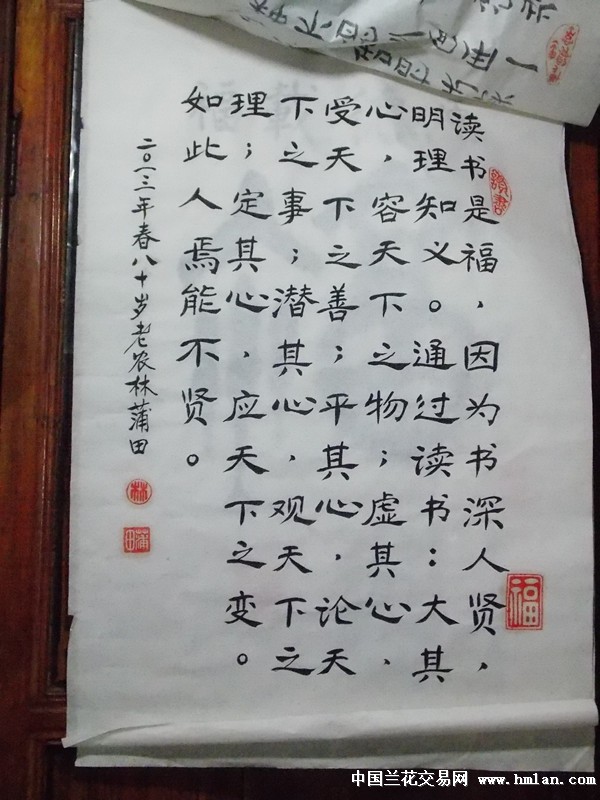 读书是福，因为书深人贤，
明理知义。通过读书：大其
心，容天下之物；虚其心，
受天下之善；平其心，论天
下之事；潜其心，观天下之
理；定其心，应天下之变。
如此人焉能不贤。
二〇一三年春八十岁老农林蒲田
读书
福
林
蒲田
中国兰花交易网 www.hmlan.com